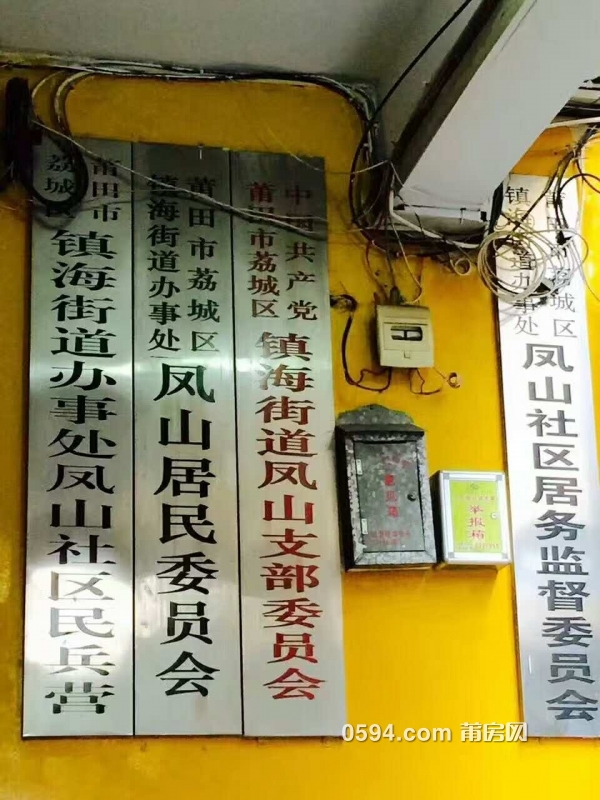 莆田市
荔城区
镇海街道办事处凤山社区民兵营
莆田市荔城区
镇海街道办事处
凤山居民委员会
中国共产党
莆田市荔城区
镇海街道凤山支部委员会
意见箱
举报箱
莆田市荔城区
镇海街道办事处
凤山社区居务监督委员会
0594.com 莆房网